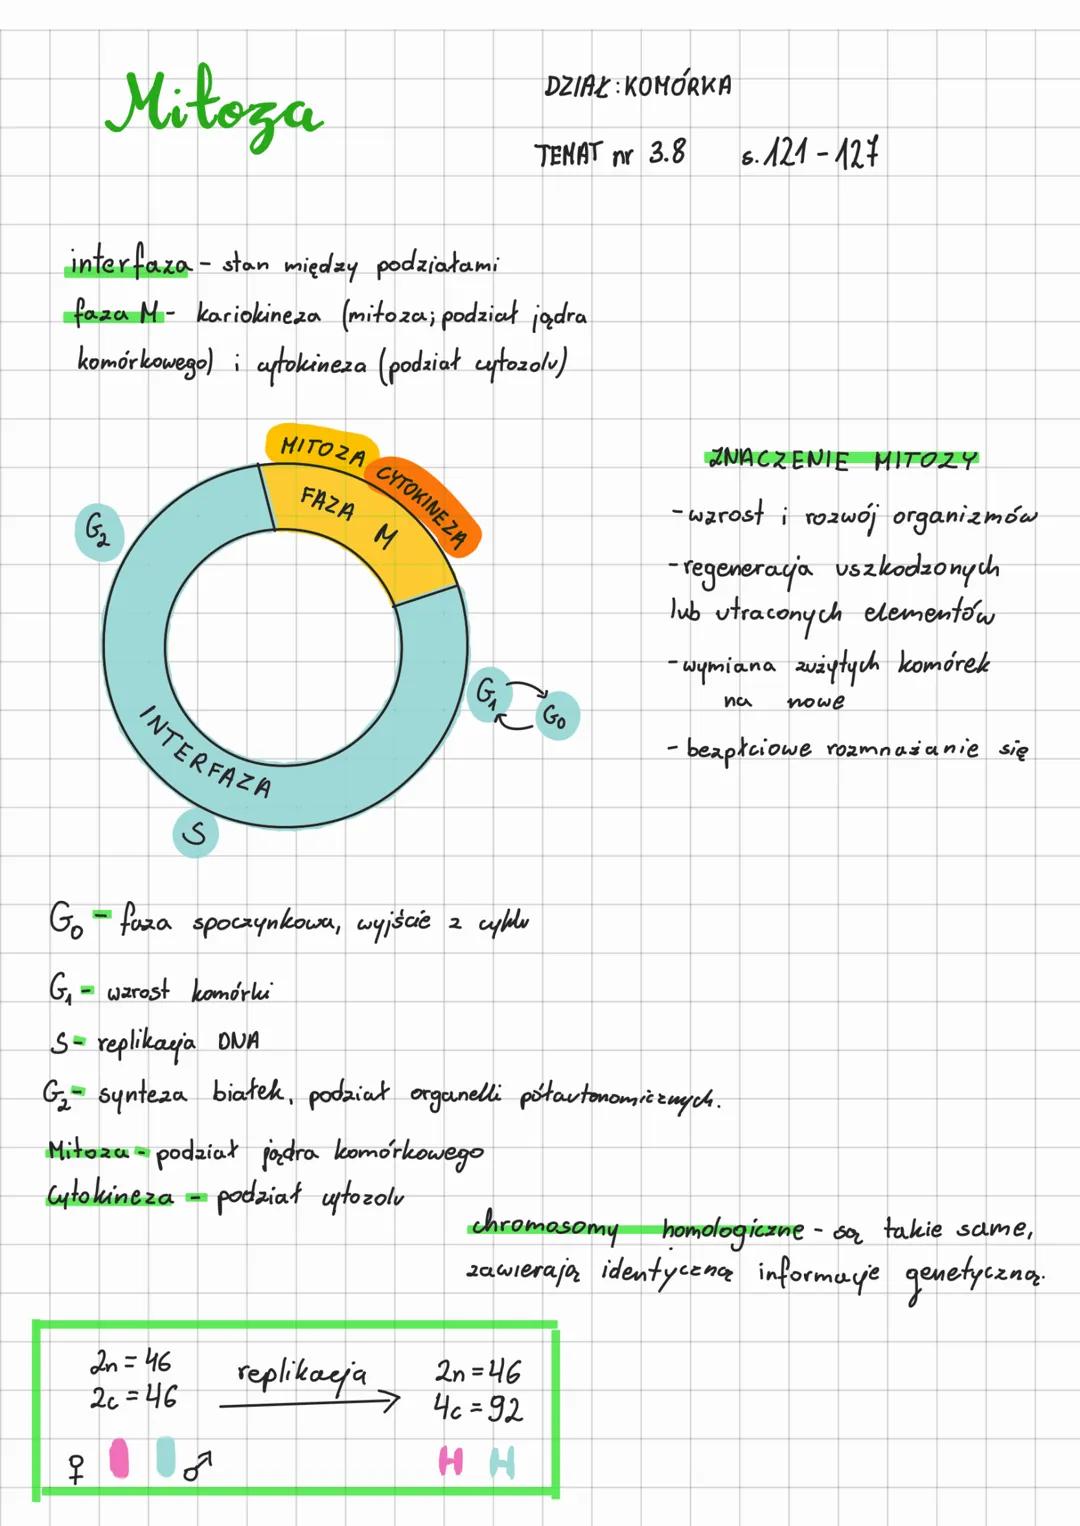 Mitoza
DZIAŁ: KOMÓRKA
TEMAT nr 3.8 s. 121 - 127
interfaza - stan między podziałami
faza M - kariokineza (mitoza; podział jądra
komórkowego) i cytokineza (podział cytozolu)
MITOZA
CYTOKINEZA
FAZA M
G2
G1
G0
INTERFAZA
S
ZNACZENIE MITOZY
- wzrost i rozwój organizmów
- regeneracja uszkodzonych
lub utraconych elementów
- wymiana zużytych komórek
na nowe
- bezpłciowe rozmnażanie się
G0 - faza spoczynkowa, wyjście z cyklu
G1 - wzrost komórki
S - replikacja DNA
G2 - synteza białek, podział organelli półautonomicznych.
Mitoza - podział jądra komórkowego
Cytokineza - podział cytozolu
chromosomy homologiczne - są takie same,
zawierają identyczną informację genetyczną.
2n = 46
2c = 46
replikacja
2n = 46
4c = 92
♀ ♂